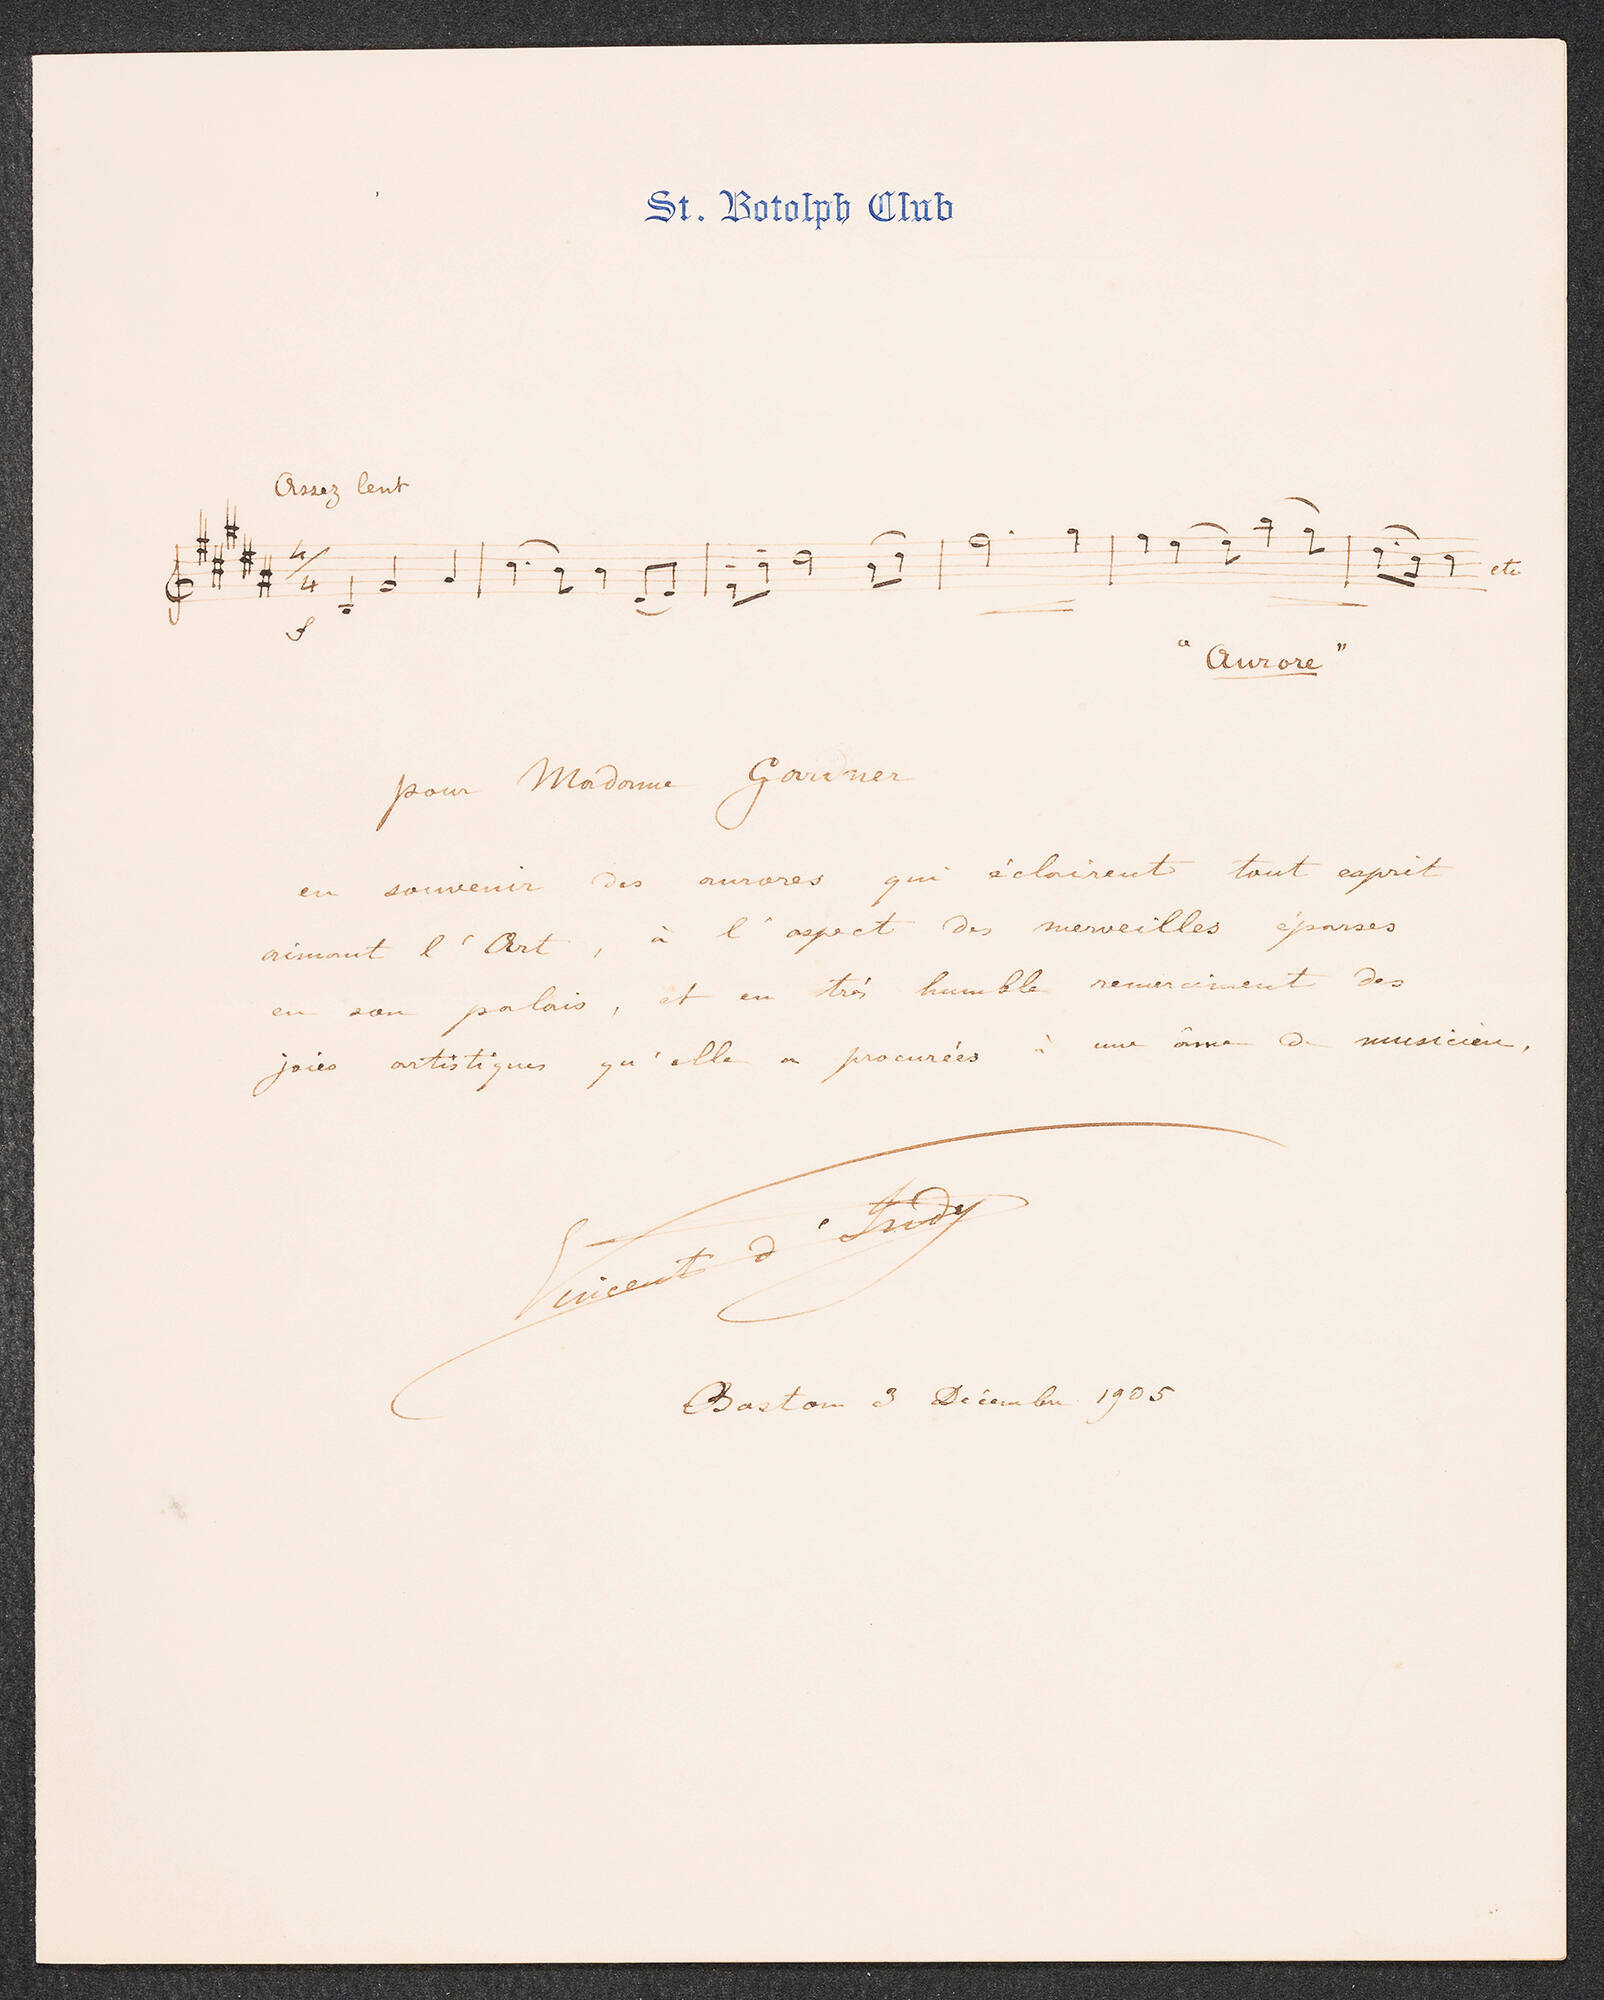 St. Botolph Club
Assez lent
4/4
f
etc
"Aurore"
pour Madame Gardner
en souvenir des aurores qui éclairent tout esprit
aimant l'Art, à l'aspect des merveilles éparses
en son palais, et en très humble remerciment des
joies artistiques qu'elle a procurées à une âme de musicien,
Vincent d'Indy
Boston 3 Décembre 1905